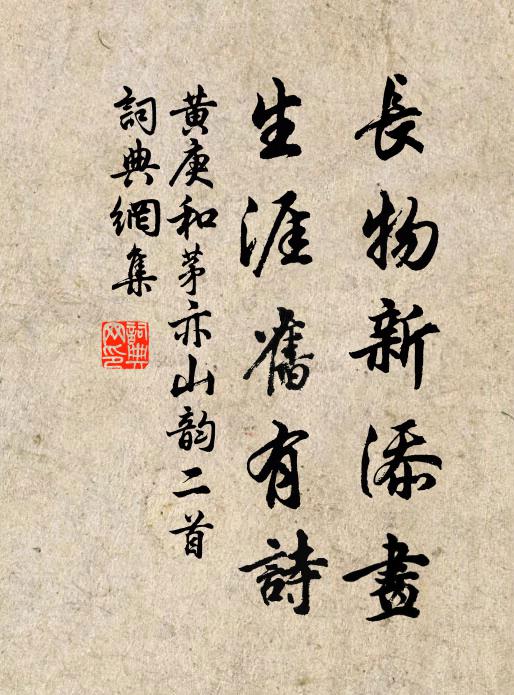 長物新添畫
生涯舊有詩
黃庚和茅亦山韵二首
詞典網集
詞典网印